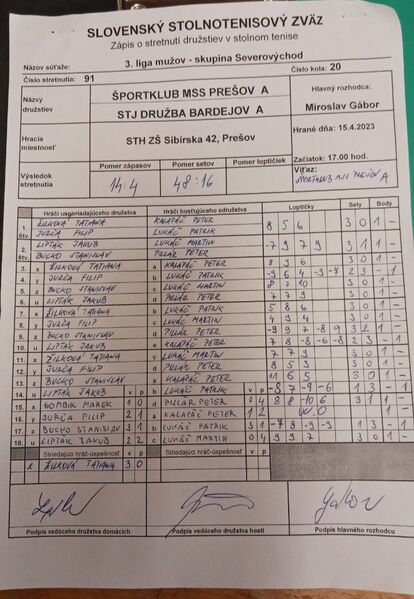 SLOVENSKÝ STOLNOTENISOVÝ ZVÄZ
Zápis o stretnutí družstiev v stolnom tenise
Názov súťaže: 3. liga mužov - skupina Severovýchod
Číslo stretnutia: 91 Číslo kola: 20
Názvy družstiev ŠPORTKLUB MSS PREŠOV A
STJ DRUŽBA BARDEJOV A
Hlavný rozhodca:
Miroslav Gábor
Hracia miestnosť STH ZŠ Sibírska 42, Prešov
Hrané dňa: 15.4.2023
Začiatok: 17.00 hod.
Výsledok stretnutia
Pomer zápasov Pomer setov Pomer loptičiek
14:4 48:16
Víťaz:
ŠPORTKLUB MSS PREŠOV A
Hráči usporiadajúceho družstva Hráči hosťujúceho družstva Loptičky Sety Body
1. štv. ŽILKOVÁ TATIANA KALAPÁČ PETER
JURČA FILIP LUKÁČ PATRIK 8 5 6 3 0 1 -
2. štv. LIPTÁK JAKUB LUKÁČ MARTIN
BUCKO STANISLAV PILLÁR PETER -7 9 7 9 3 1 1 -
3. x ŽILKOVÁ TATIANA a KALAPÁČ PETER 8 9 6 3 0 1 -
4. y JURČA FILIP b LUKÁČ PATRIK 2 3 - 1
5. z BUCKO STANISLAV c LUKÁČ MARTIN 8 7 10 3 0 1 -
6. u LIPTÁK JAKUB d PILLÁR PETER 7 7 9 3 0 1 -
7. x ŽILKOVÁ TATIANA b LUKÁČ PATRIK 5 8 6 3 0 1 -
8. y JURČA FILIP c LUKÁČ MARTIN 4 9 4 3 0 1 -
9. z BUCKO STANISLAV d PILLÁR PETER -9 9 7 -8 9 3 2 1 -
10. u LIPTÁK JAKUB a KALAPÁČ PETER 7 8 -8 -6 -8 2 3 - 1
11. x ŽILKOVÁ TATIANA c LUKÁČ MARTIN 7 7 9 3 0 1 -
12. y JURČA FILIP d PILLÁR PETER 8 5 3 3 0 1 -
13. z BUCKO STANISLAV a KALAPÁČ PETER 11 6 5 3 0 1 -
14. u LIPTÁK JAKUB v p b LUKÁČ PATRIK v p -8 7 -9 -6 1 3 - 1
15. x GOMBIK MAREK 1 0 d PILLÁR PETER 0 4 8 8 -10 6 3 1 1 -
16. y JURČA FILIP 2 1 a KALAPÁČ PETER 1 2 W.O 1 -
17. z BUCKO STANISLAV 3 1 b LUKÁČ PATRIK 3 1 -7 8 -9 -9 1 3 - 1
18. u LIPTÁK JAKUB 2 2 c LUKÁČ MARTIN 0 4 9 9 7 3 0 1 -
Striedajúci hráč-úspešnosť v p Striedajúci hráč-úspešnosť v p
x ŽILKOVÁ TATIANA 3 0
Podpis vedúceho družstva domácich Podpis vedúceho družstva hostí Podpis hlavného rozhodcu